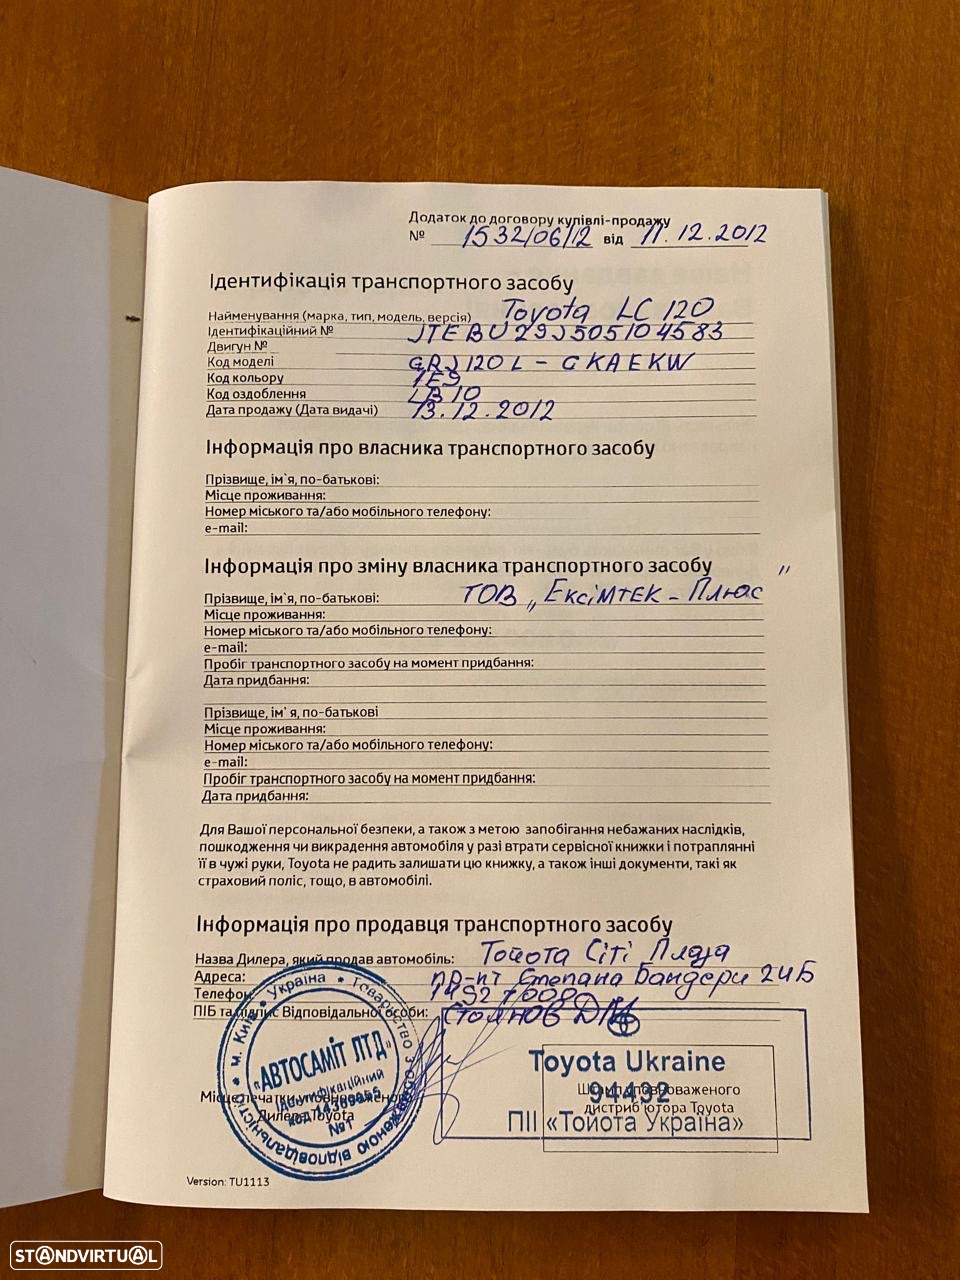 Додаток до договору купівлі-продажу
№ 1532/06/12 від 11.12.2012
Ідентифікація транспортного засобу
Найменування (марка, тип, модель, версія) Toyota LC 120
Ідентифікаційний № JTEBU29J505104583
Двигун №
Код моделі GRJ120L-GKAEKW
Код кольору 1E9
Код оздоблення LB10
Дата продажу (Дата видачі) 13.12.2012
Інформація про власника транспортного засобу
Прізвище, ім`я, по-батькові:
Місце проживання:
Номер міського та/або мобільного телефону:
e-mail:
Інформація про зміну власника транспортного засобу
Прізвище, ім`я, по-батькові: ТОВ „Ексімтек - Плюс"
Місце проживання:
Номер міського та/або мобільного телефону:
e-mail:
Пробіг транспортного засобу на момент придбання:
Дата придбання:
Прізвище, ім`я, по-батькові
Місце проживання:
Номер міського та/або мобільного телефону:
e-mail:
Пробіг транспортного засобу на момент придбання:
Дата придбання:
Для Вашої персональної безпеки, а також з метою запобігання небажаних наслідків,
пошкодження чи викрадення автомобіля у разі втрати сервісної книжки і потраплянні
її в чужі руки, Toyota не радить залишати цю книжку, а також інші документи, такі як
страховий поліс, тощо, в автомобілі.
Інформація про продавця транспортного засобу
Назва Дилера, який продав автомобіль: Тойота Сіті Плаза
Адреса: пр-кт Степана Бандери 24Б
Телефон
ПІБ та підпис Відповідальної особи: Стоянов
Україна * Товариство з обмеженою відповідальністю * м. Київ
«АВТОСАМІТ ЛТД»
Ідентифікаційний
код
№1
Місце печатки уповноваженого
Дилера Toyota
Toyota Ukraine
94492
Штамп уповноваженого
дистриб'ютора Toyota
ПІІ «Тойота Україна»
Version: TU1113
STANDVIRTUAL